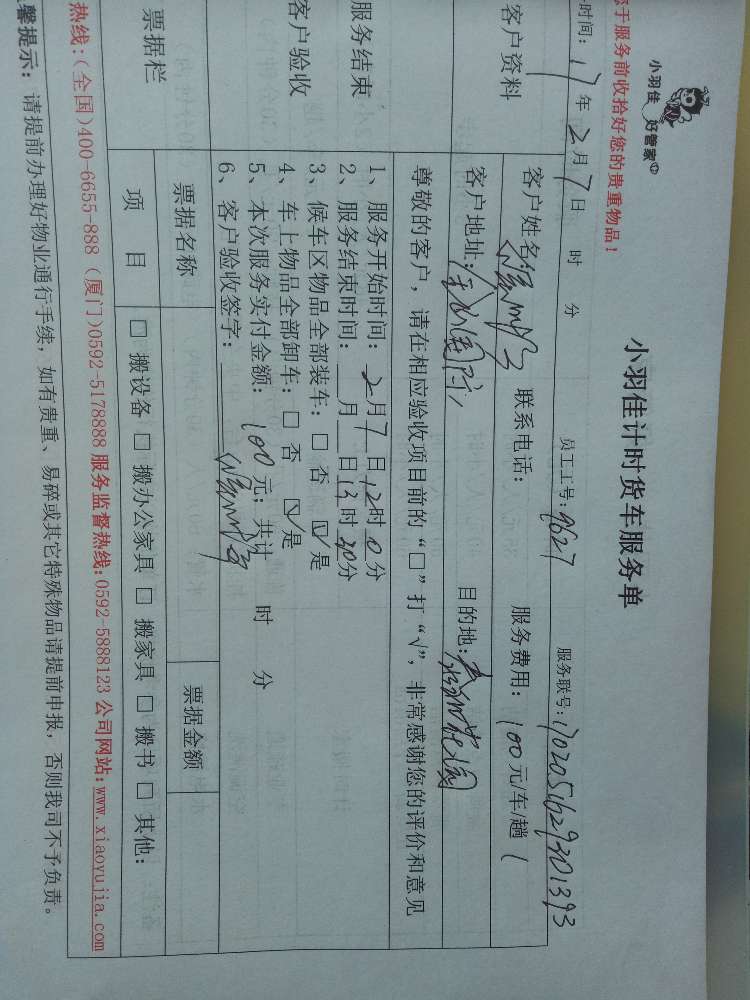 小羽佳 好管家
小羽佳计时货车服务单
于服务前收拾好您的贵重物品！
时间：17年2月7日 时 分 员工工号：9627 服务联号：170205629301393
客户资料
客户姓名： 联系电话： 服务费用：100元/车/趟（
客户地址： 目的地：花园
尊敬的客户，请在相应验收项目前的“□”打“√”，非常感谢您的评价和意见
服务结束
客户验收
1、服务开始时间：2月7日12时0分
2、服务结束时间：__月__日13时20分
3、候车区物品全部装车：□否 ☑是
4、车上物品全部卸车：□否 ☑是
5、本次服务实付金额：100元；共计 时 分
6、客户验收签字：
票据栏
票据名称 票据金额
项目 □搬设备 □搬办公家具 □搬家具 □搬书 □其他：
热线：(全国)400-6655-888（厦门)0592-5178888 服务监督热线:0592-5888123 公司网站:www.xiaoyujia.com
馨提示：请提前办理好物业通行手续，如有贵重、易碎或其它特殊物品请提前申报，否则我司不予负责。